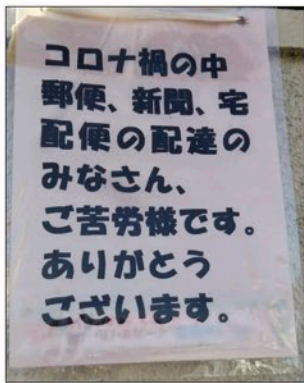 コロナ禍の中
郵便、新聞、宅
配便の配達の
みなさん、
ご苦労様です。
ありがとう
ございます。